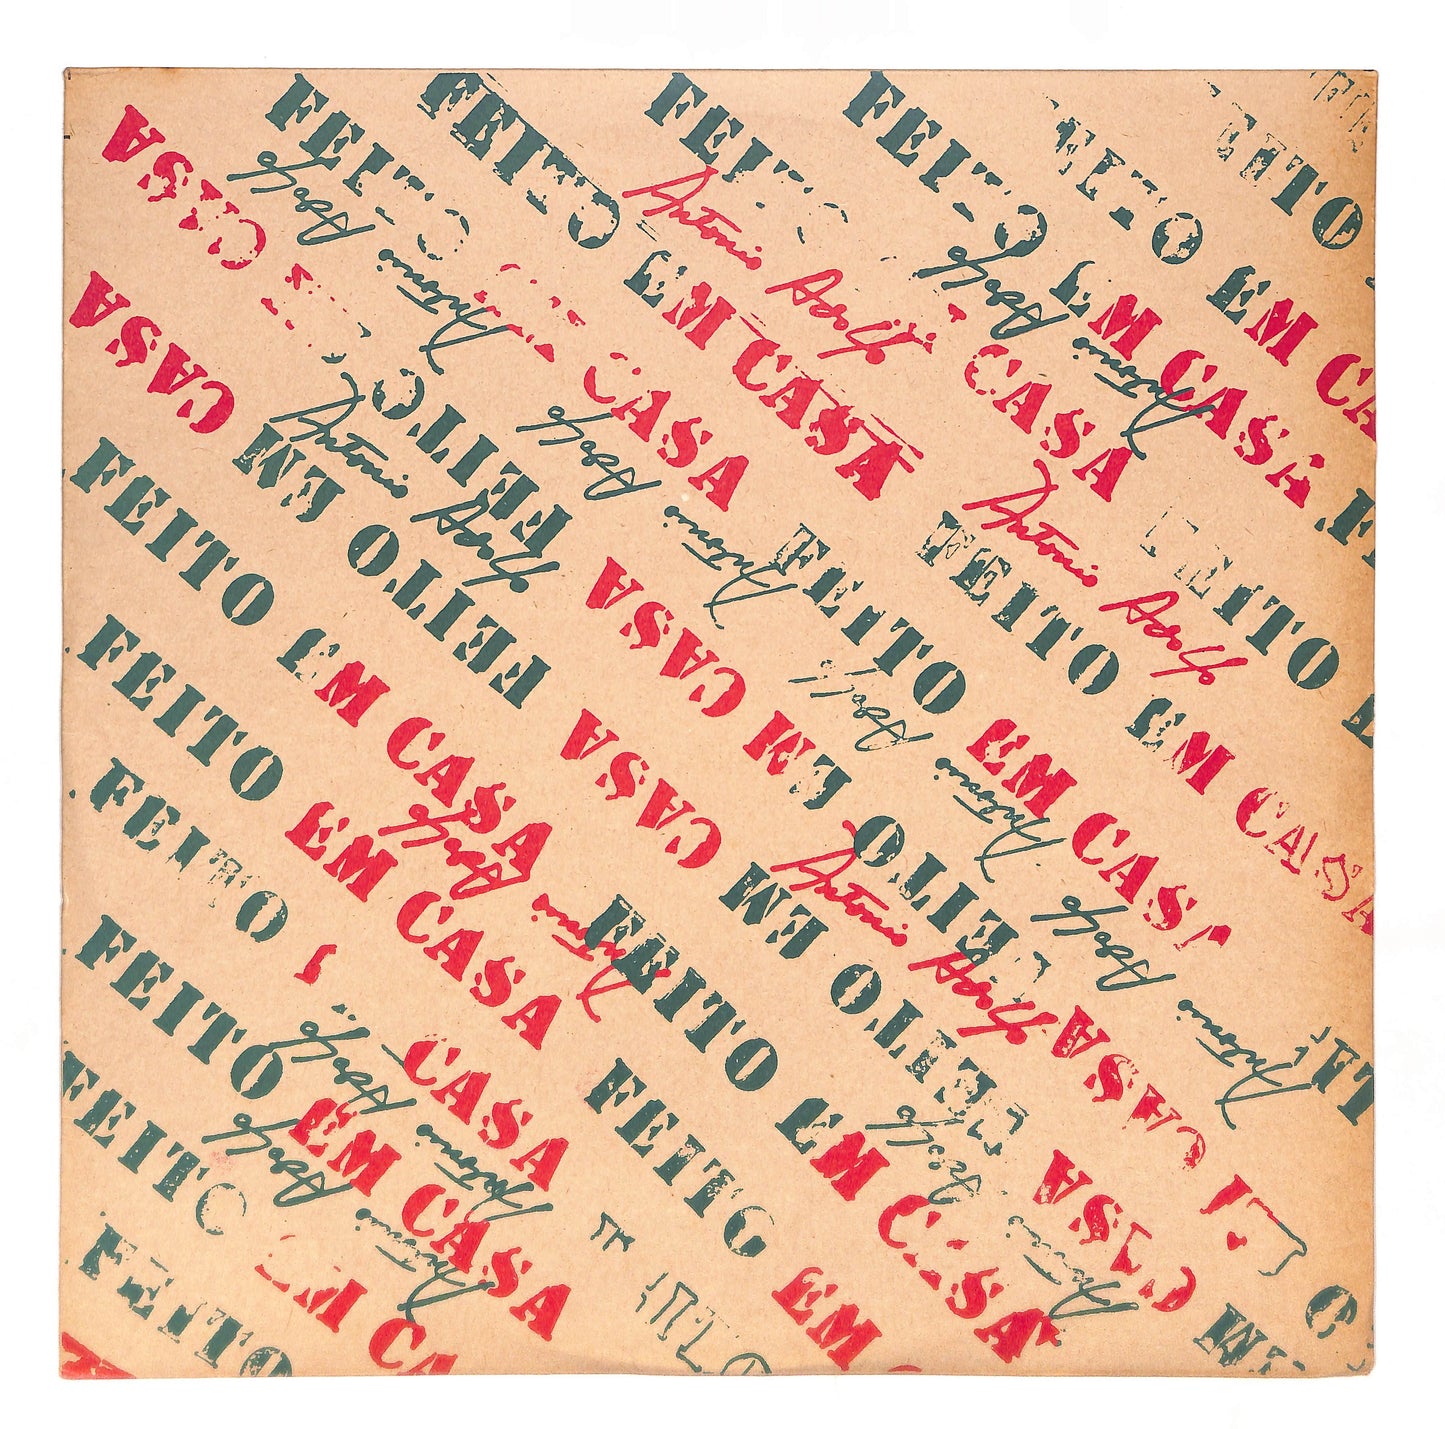 FEITO
FEITO
FEITO
FEITO
FEITO
FEITO
CASA
Antonio Adolfo
EM CASA
EM CASA
EM CASA
Antonio Adolfo
Antonio Adolfo
CASA
CASA
CASA
CASA
FEITO
FEITO EM
Antonio Adolfo
Antonio Adolfo
FEITO EM CASA
FEITO EM CASA
FEITO EM CASA
Antonio Adolfo
FEITO EM CASA
FEITO EM CASA
FEITO EM CASA
Antonio Adolfo
FEITO
CASA
Antonio Adolfo
Antonio Adolfo
Antonio Adolfo
FEITO EM CASA
FEITO EM CASA
FEITO EM CASA
Antonio Adolfo
Antonio Adolfo
FEITO
EM CASA
FEITO
CASA
CASA
Antonio Adolfo
FEITO
EM CA
EM